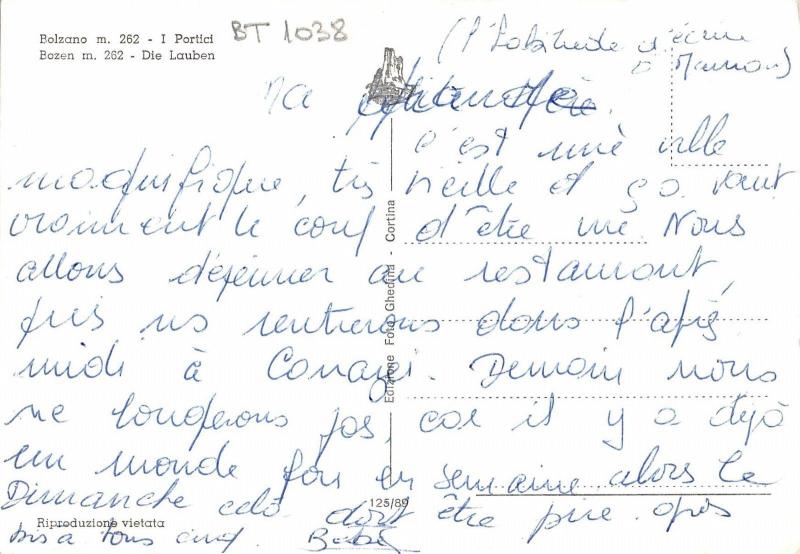 Bolzano m. 262 - I Portici
Bozen m. 262 - Die Lauben
BT 1038
(l'habitude d'écrire
à Maman)
Ma
c'est une ville
magnifique, très vieille et ça vaut
vraiment le coup d'être vu. Nous
allons déjeuner au restaurant,
puis ns rentrerons dans l'après
midi à Canazei. Demain nous
ne bougerons pas, car il y a déjà
un monde fou en semaine alors le
Dimanche cela doit être pire. gros
bis à tous cinq. Bébé
Edizione Foto Ghedina - Cortina
125/89
Riproduzione vietata